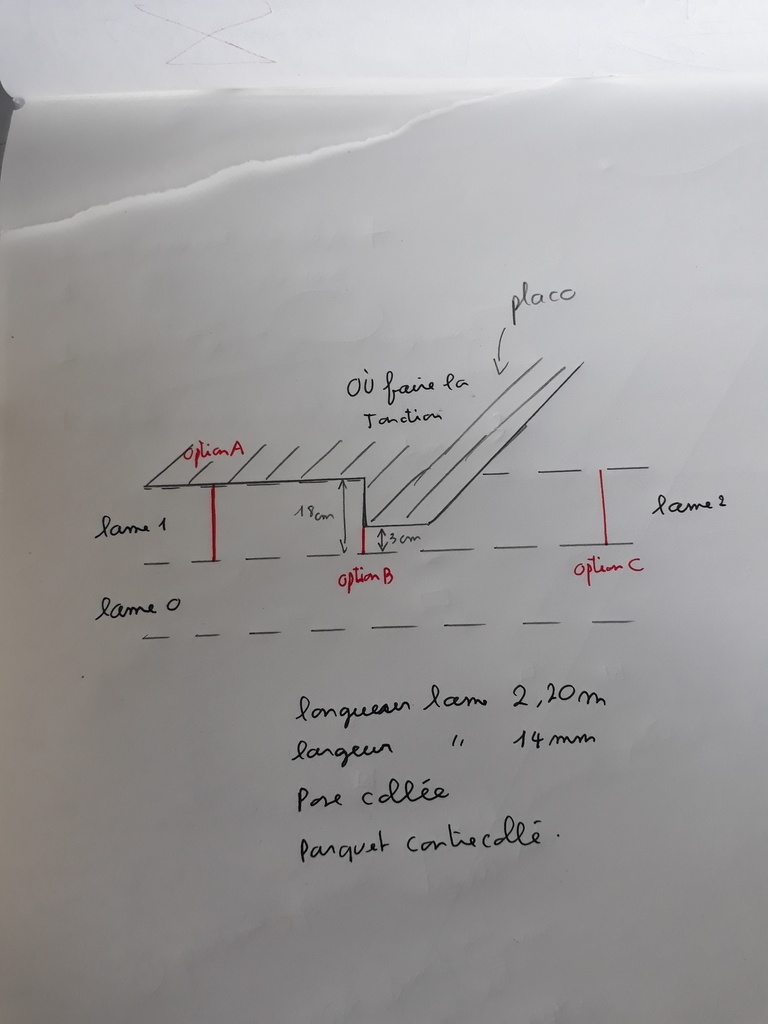 placo
OÙ faire la
Jonction
Option A
18cm
lame 1
lame 2
3 cm
Option B
Option C
lame 0
longueur lame 2,20m
largeur " 14 mm
Pose collée
Parquet contrecollé.